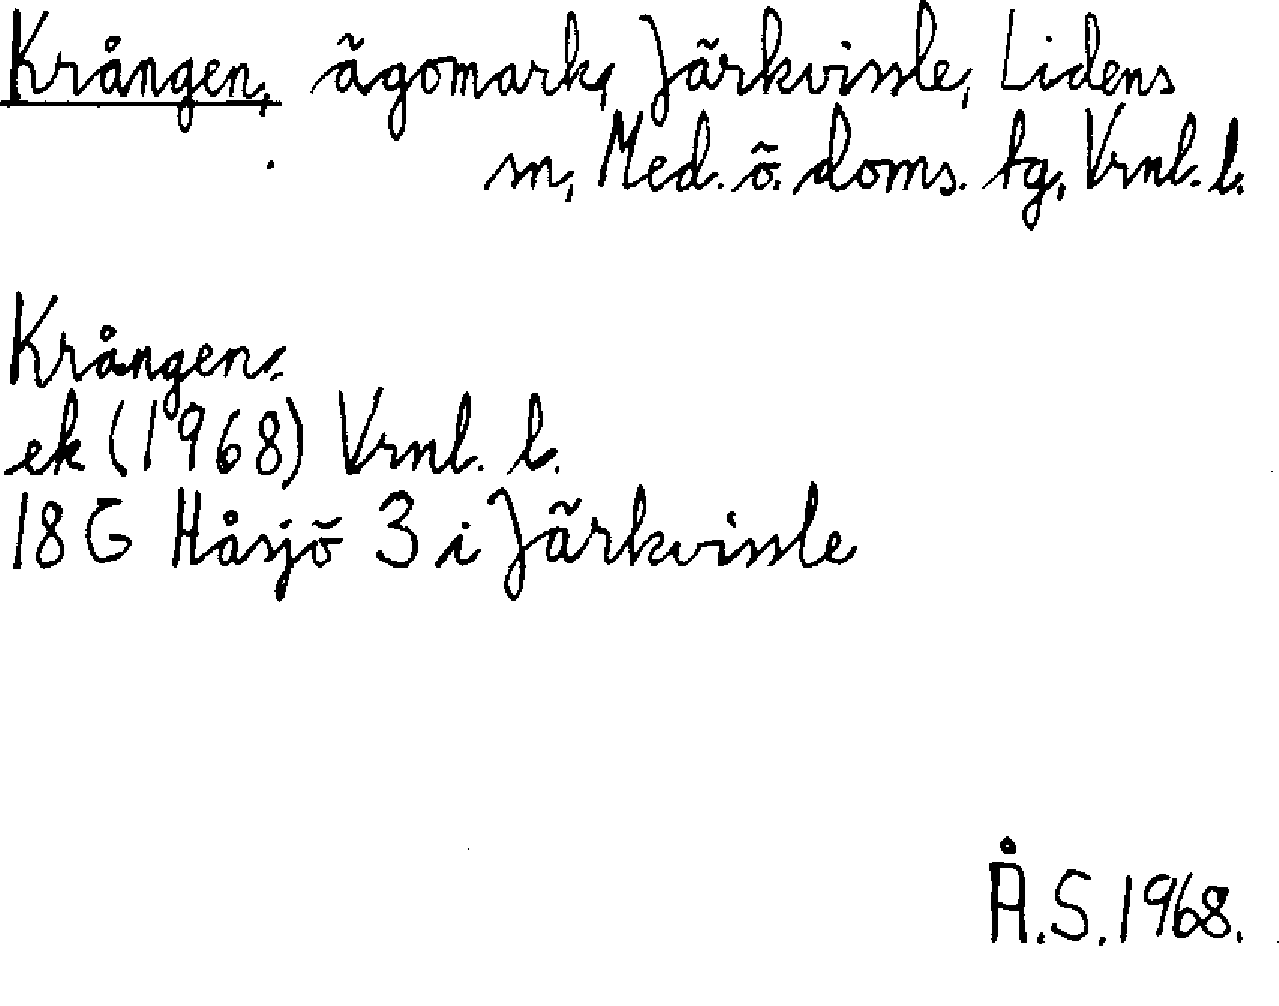 Krången, ägomark, Järkvissle, Lidens
sn, Med. ö. doms. tg, Vrnl. l.
Krången:
ek (1968) Vrnl. l.
18G Håsjö 3 i Järkvissle
Å.S.1968.